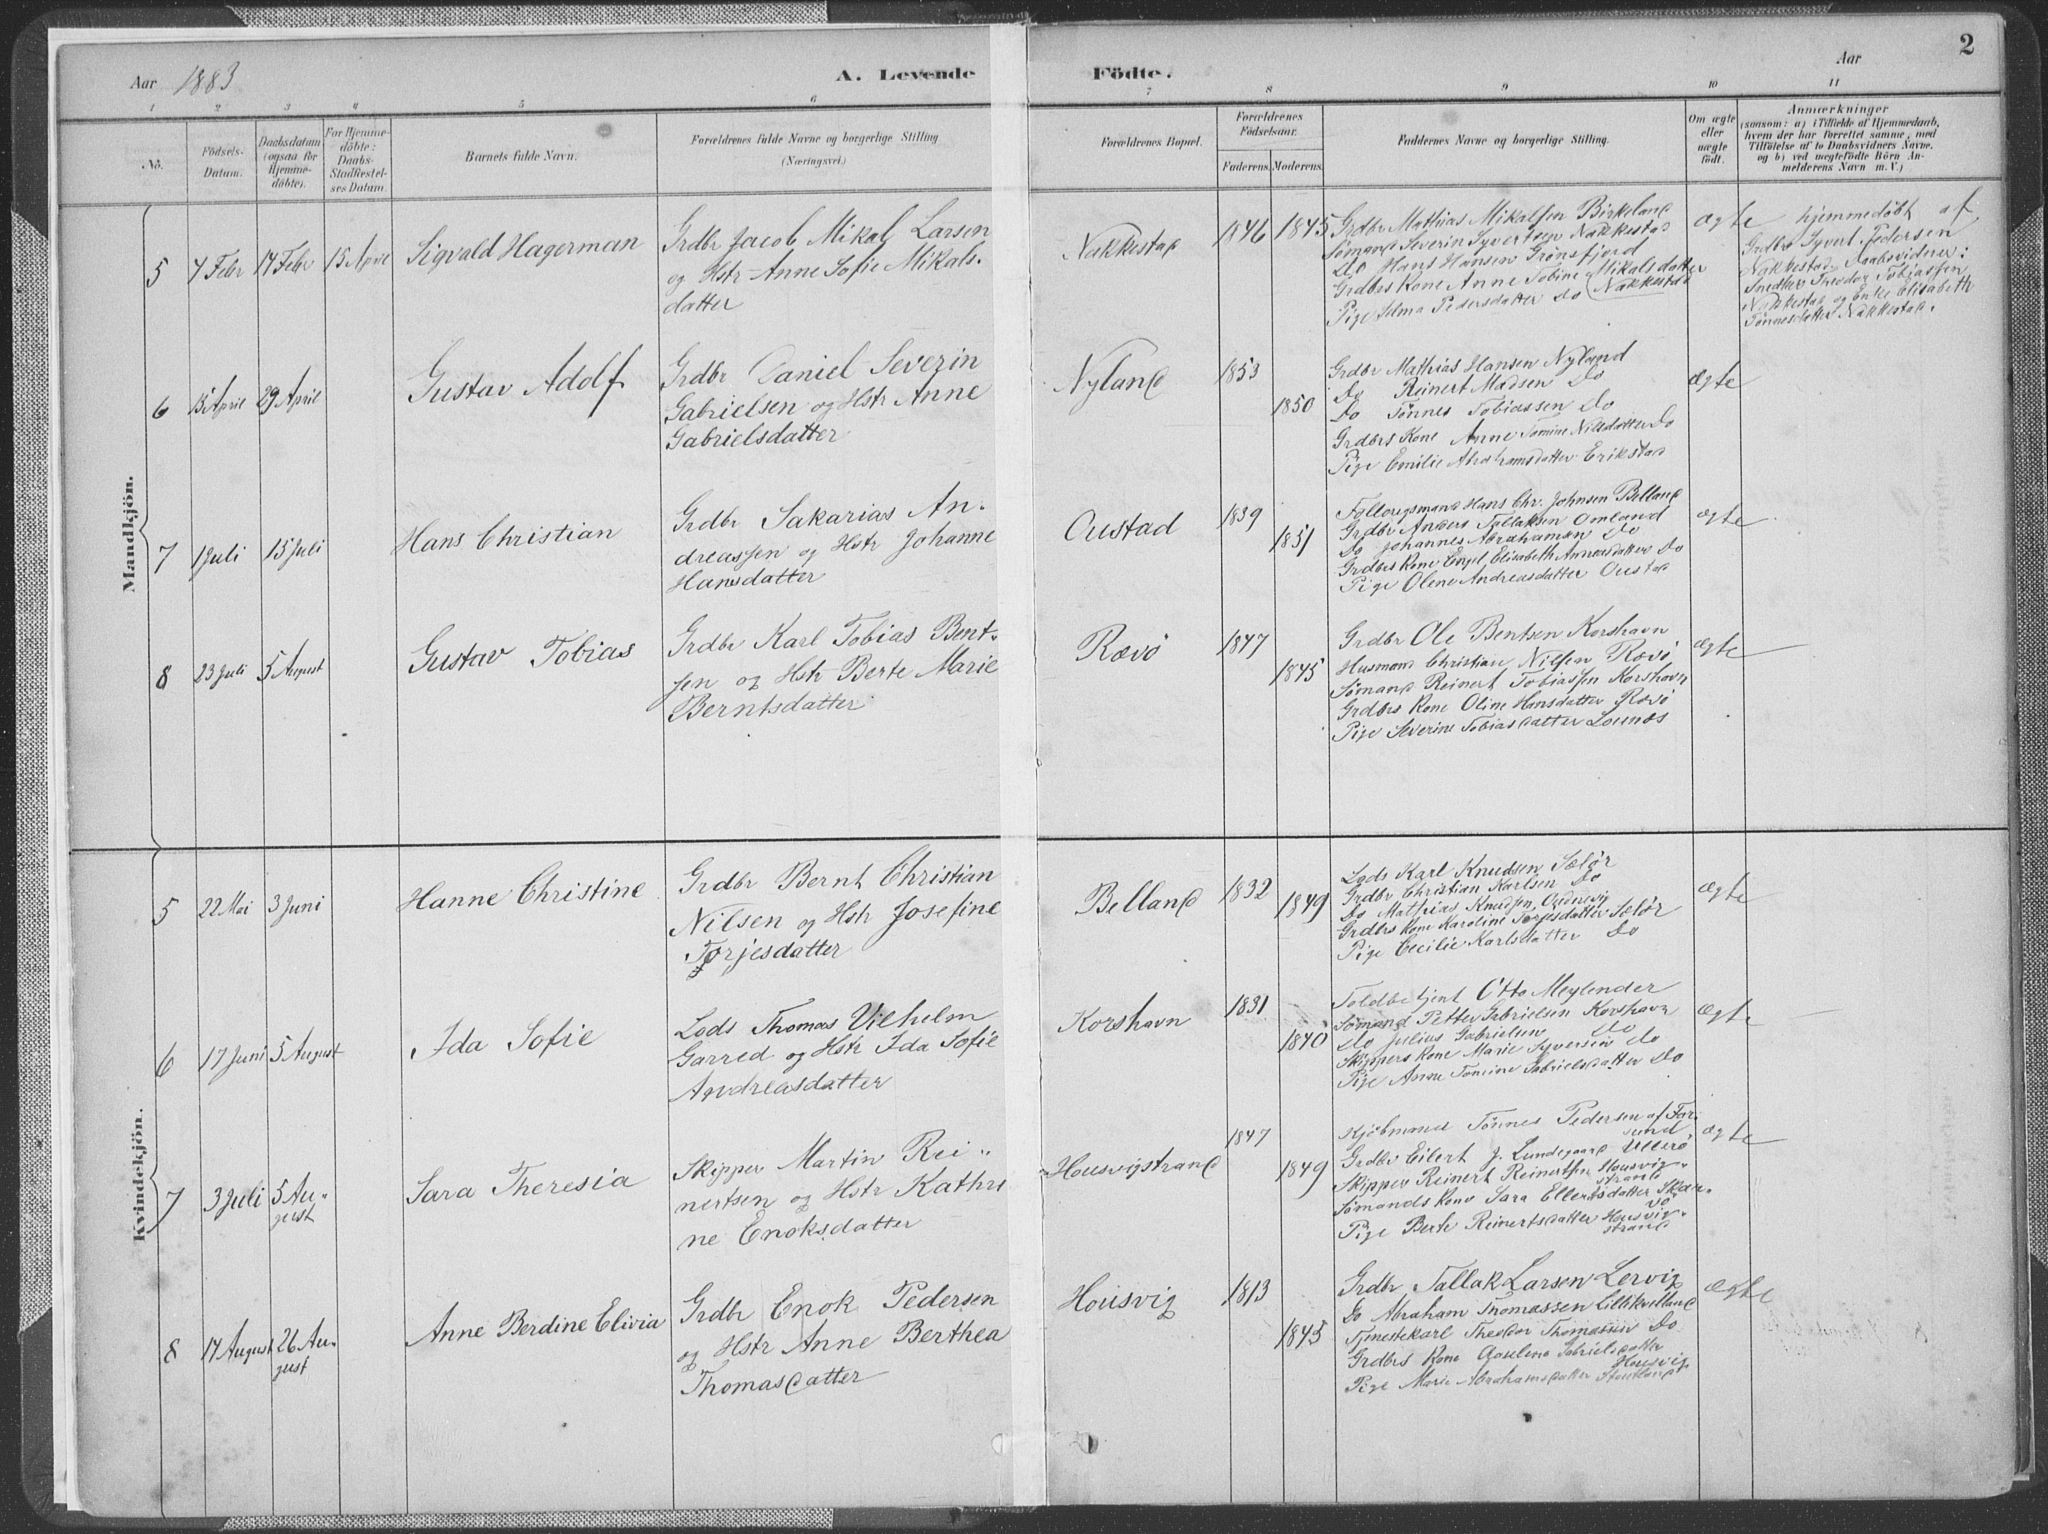 2
Aar 1883
A. Levende Födte.
Aar
1 2 3 4 5 6 7 8 9 10 11
No.
Födsels-Datum.
Daabsdatum (ogsaa for Hjemmedöbte).
For Hjemmedöbte: Daabs-Stadfæstelses Datum.
Barnets fulde Navn.
Forældrenes fulde Navne og borgerlige Stilling (Næringsvei.)
Forældrenes Bopæl.
Forældrenes Födselsaar.
Faderens. Moderens.
Faddernes Navne og borgerlige Stilling.
Om ægte eller uægte födt.
Anmærkninger
(saasom: a) i Tilfælde af Hjemmedaab,
hvem der har forrettet samme, med
Tilföielse af to Daabsvidners Navne,
og b) ved uægtefödte Börn An-
melderens Navn m. V.)
Mandkjön.
5 7 Febr 14 Febr 15 April Sigvald Hagerman
Grdbr Jacob Mikal Larsen
og Hstr Anne Sofie Mikals-
datter
Nakkestad 1846 1845
Grdbr Mathias Mikalsen Birkeland
Sømand Severin Syvertsen Nakkestad
Do Hans Hansen Grønsfjord
Grdbrs Kone Anne Tobine Mikalsdatter
Pige Selma Pedersdatter do (Nakkestad
ægte
hjemmedøbt af
Grdbr Syvert Pedersen
Nakkestad, Daabsvidner:
Snedker Theodor Tobiassen
Nakkestad og Enke Elisabeth
Tønnesdatter Nakkestad.
6 13 April 29 April Gustav Adolf
Grdbr Daniel Severin
Gabrielsen og Hstr Anne
Gabrielsdatter
Nyland 1853 1850
Grdbr Mathias Hansen Nyland
Do Reinert Madsen Do
Do Tønnes Tobiassen Do
Grdbrs Kone Anne Tomine Nilsdatter Do
Pige Emilie Abrahamsdatter Erikstad
ægte
7 1 Juli 15 Juli Hans Christian
Grdbr Sakarias An-
dreassen og Hstr Johanne
Hansdatter
Oustad 1839 1851
Hans Chr. Johnsen Belland
Grdbr Anders Tallaksen Omland
Do Johannes Abrahamsen Do
Grdbrs Kone Engel Elisabeth Andreasdatter Do
Pige Olene Andreasdatter Oustad
ægte
8 23 Juli 5 August Gustav Tobias
Grdbr Karl Tobias Bent-
sen og Hstr Berte Marie
Berntsdatter
Rævø 1847 1845
Grdbr Ole Bentsen Korshavn
Husmand Christian Nilsen Rævø
Sømand Reinert Tobiassen Korshavn
Grdbrs Kone Oline Hansdatter Rævø
Pige Severine Tobiasdatter Lounes
ægte
Kvindekjön.
5 22 Mai 3 Juni Hanne Christine
Grdbr Bernt Christian
Nilsen og Hstr Josefine
Torjesdatter
Belland 1832 1849
Lods Karl Knudsen Sælør
Grdbr Christian Karlsen Do
Do Mathias Knudsen
Grdbrs Kone Karoline Torjesdatter Sælør
Pige Cecilie Karlsdatter Do
ægte
6 17 Juni 5 August Ida Sofie
Lods Thomas Vilhelm
Garred og Hstr Ida Sofie
Andreasdatter
Korshavn 1831 1840
Toldbetjent Otto Meylender
Sømand Petter Gabrielsen Korshavn
Do Julius Gabrielsen do
Skippers Kone Marie Syversen do
Pige Anne Tomine Gabrielsdatter Do
ægte
7 3 Juli 5 Au-
gust
Sara Theresia
Skipper Martin Rei-
nertsen og Hstr Kathri
ne Enoksdatter
Housvigstrand 1847 1849
Kjøbmand Tønnes Pedersen af Far-
sund
Grdbr Eilert J. Lundegaard Ullerø
Skipper Reinert Reinertsen Housvig-
strand
Sømands Kone Sara Ellertsdatter
Pige Berte Reinertsdatter Housvig-
strand
ægte
8 14 August 26 Au-
gust
Anne Berdine Elivia
Grdbr Enok Pedersen
og Hstr Anne Berthea
Thomasdatter
Housvig 1813 1845
Grdbr Tallak Larsen Lervig
Do Abraham Thomassen Lillekvelland
Tjenestekarl Theodor Thomassen Do
Grdbrs Kone Gabrielsdatter
Housvig
Pige Marie Abrahamsdatter
ægte